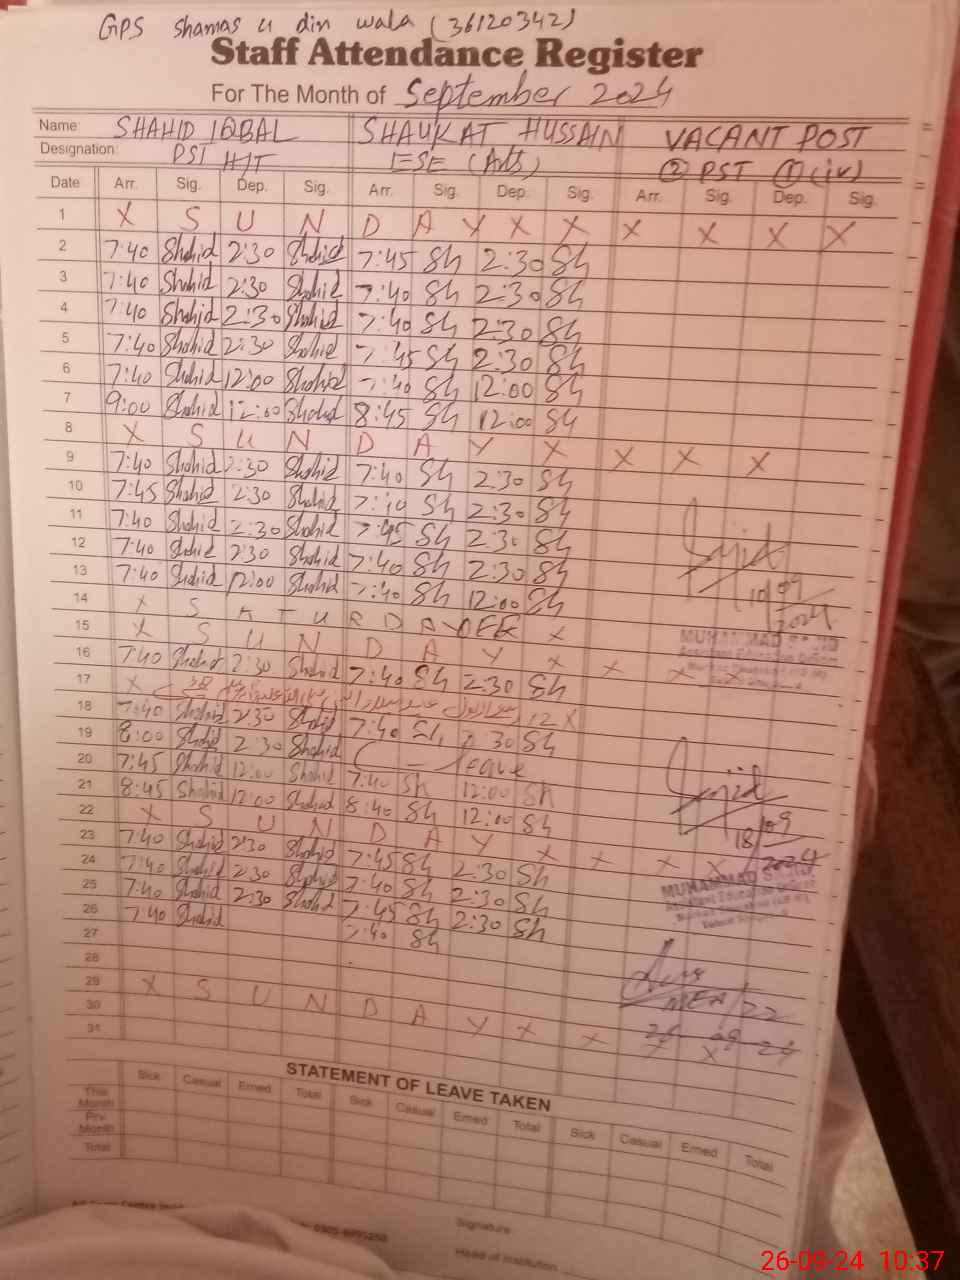 GPS shamas u din wala (36120342)
Staff Attendance Register
For The Month of September 2024
Name: SHAHID IQBAL SHAUKAT HUSSAIN VACANT POST
Designation: PST HIT ESE (Arts) ② PST ① (iv)
Date Arr. Sig. Dep. Sig. Arr. Sig. Dep. Sig. Arr. Sig. Dep. Sig.
1 X S U N D A Y X X X X X X
2 7:40 Shahid 2:30 Shahid 7:45 Sh 2:30 Sh
3 7:40 Shahid 2:30 Shahid 7:40 Sh 2:30 Sh
4 7:40 Shahid 2:30 Shahid 7:40 Sh 2:30 Sh
5 7:40 Shahid 2:30 Shahid 7:45 Sh 2:30 Sh
6 7:40 Shahid 12:00 Shahid 7:40 Sh 12:00 Sh
7 9:00 Shahid 12:00 Shahid 8:45 Sh 12:00 Sh
8 X S U N D A Y X X X X
9 7:40 Shahid 2:30 Shahid 7:40 Sh 2:30 Sh
10 7:45 Shahid 2:30 Shahid 7:40 Sh 2:30 Sh
11 7:40 Shahid 2:30 Shahid 7:45 Sh 2:30 Sh
12 7:40 Shahid 2:30 Shahid 7:40 Sh 2:30 Sh
13 7:40 Shahid 12:00 Shahid 7:40 Sh 12:00 Sh
10/09/2024
14 X S A T U R D A Y OFF X
15 X S U N D A Y X X X X
MUHAMMAD
Assistant Education Officer
16 7:40 Shahid 2:30 Shahid 7:40 Sh 2:30 Sh
17 X 12 X
18 7:40 Shahid 2:30 Shahid 7:40 Sh 2:30 Sh
19 8:00 Shahid 2:30 Shahid C - Leave
20 7:45 Shahid 12:00 Shahid 7:40 Sh 12:00 Sh
21 8:45 Shahid 12:00 Shahid 8:40 Sh 12:00 Sh
22 X S U N D A Y X X X X
18/09/2024
23 7:40 Shahid 2:30 Shahid 7:45 Sh 2:30 Sh
24 7:40 Shahid 2:30 Shahid 7:40 Sh 2:30 Sh
MUHAMMAD
Assistant Education Officer
25 7:40 Shahid 2:30 Shahid 7:45 Sh 2:30 Sh
26 7:40 Shahid 7:40 Sh
27
28
29 X S U N D A Y X X X X
MEA/22
26 09 24
30
31
STATEMENT OF LEAVE TAKEN
Sick Casual Erned Total Sick Casual Erned Total Sick Casual Erned Total
This Month
Prv. Month
Total
Signature
Head of Institution
26-09-24 10:37